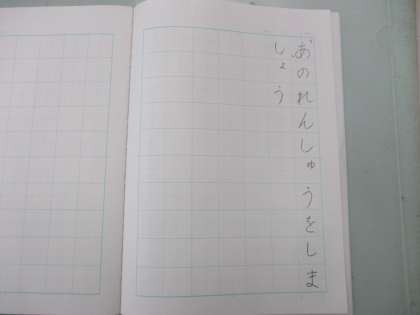 「あのれんしゅうをしま
しょう